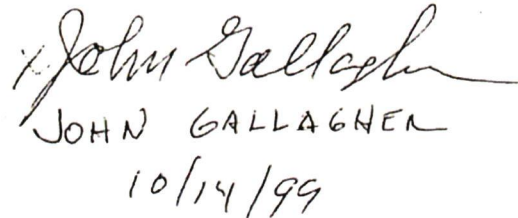 x John Gallagher
JOHN GALLAGHER
10/14/99